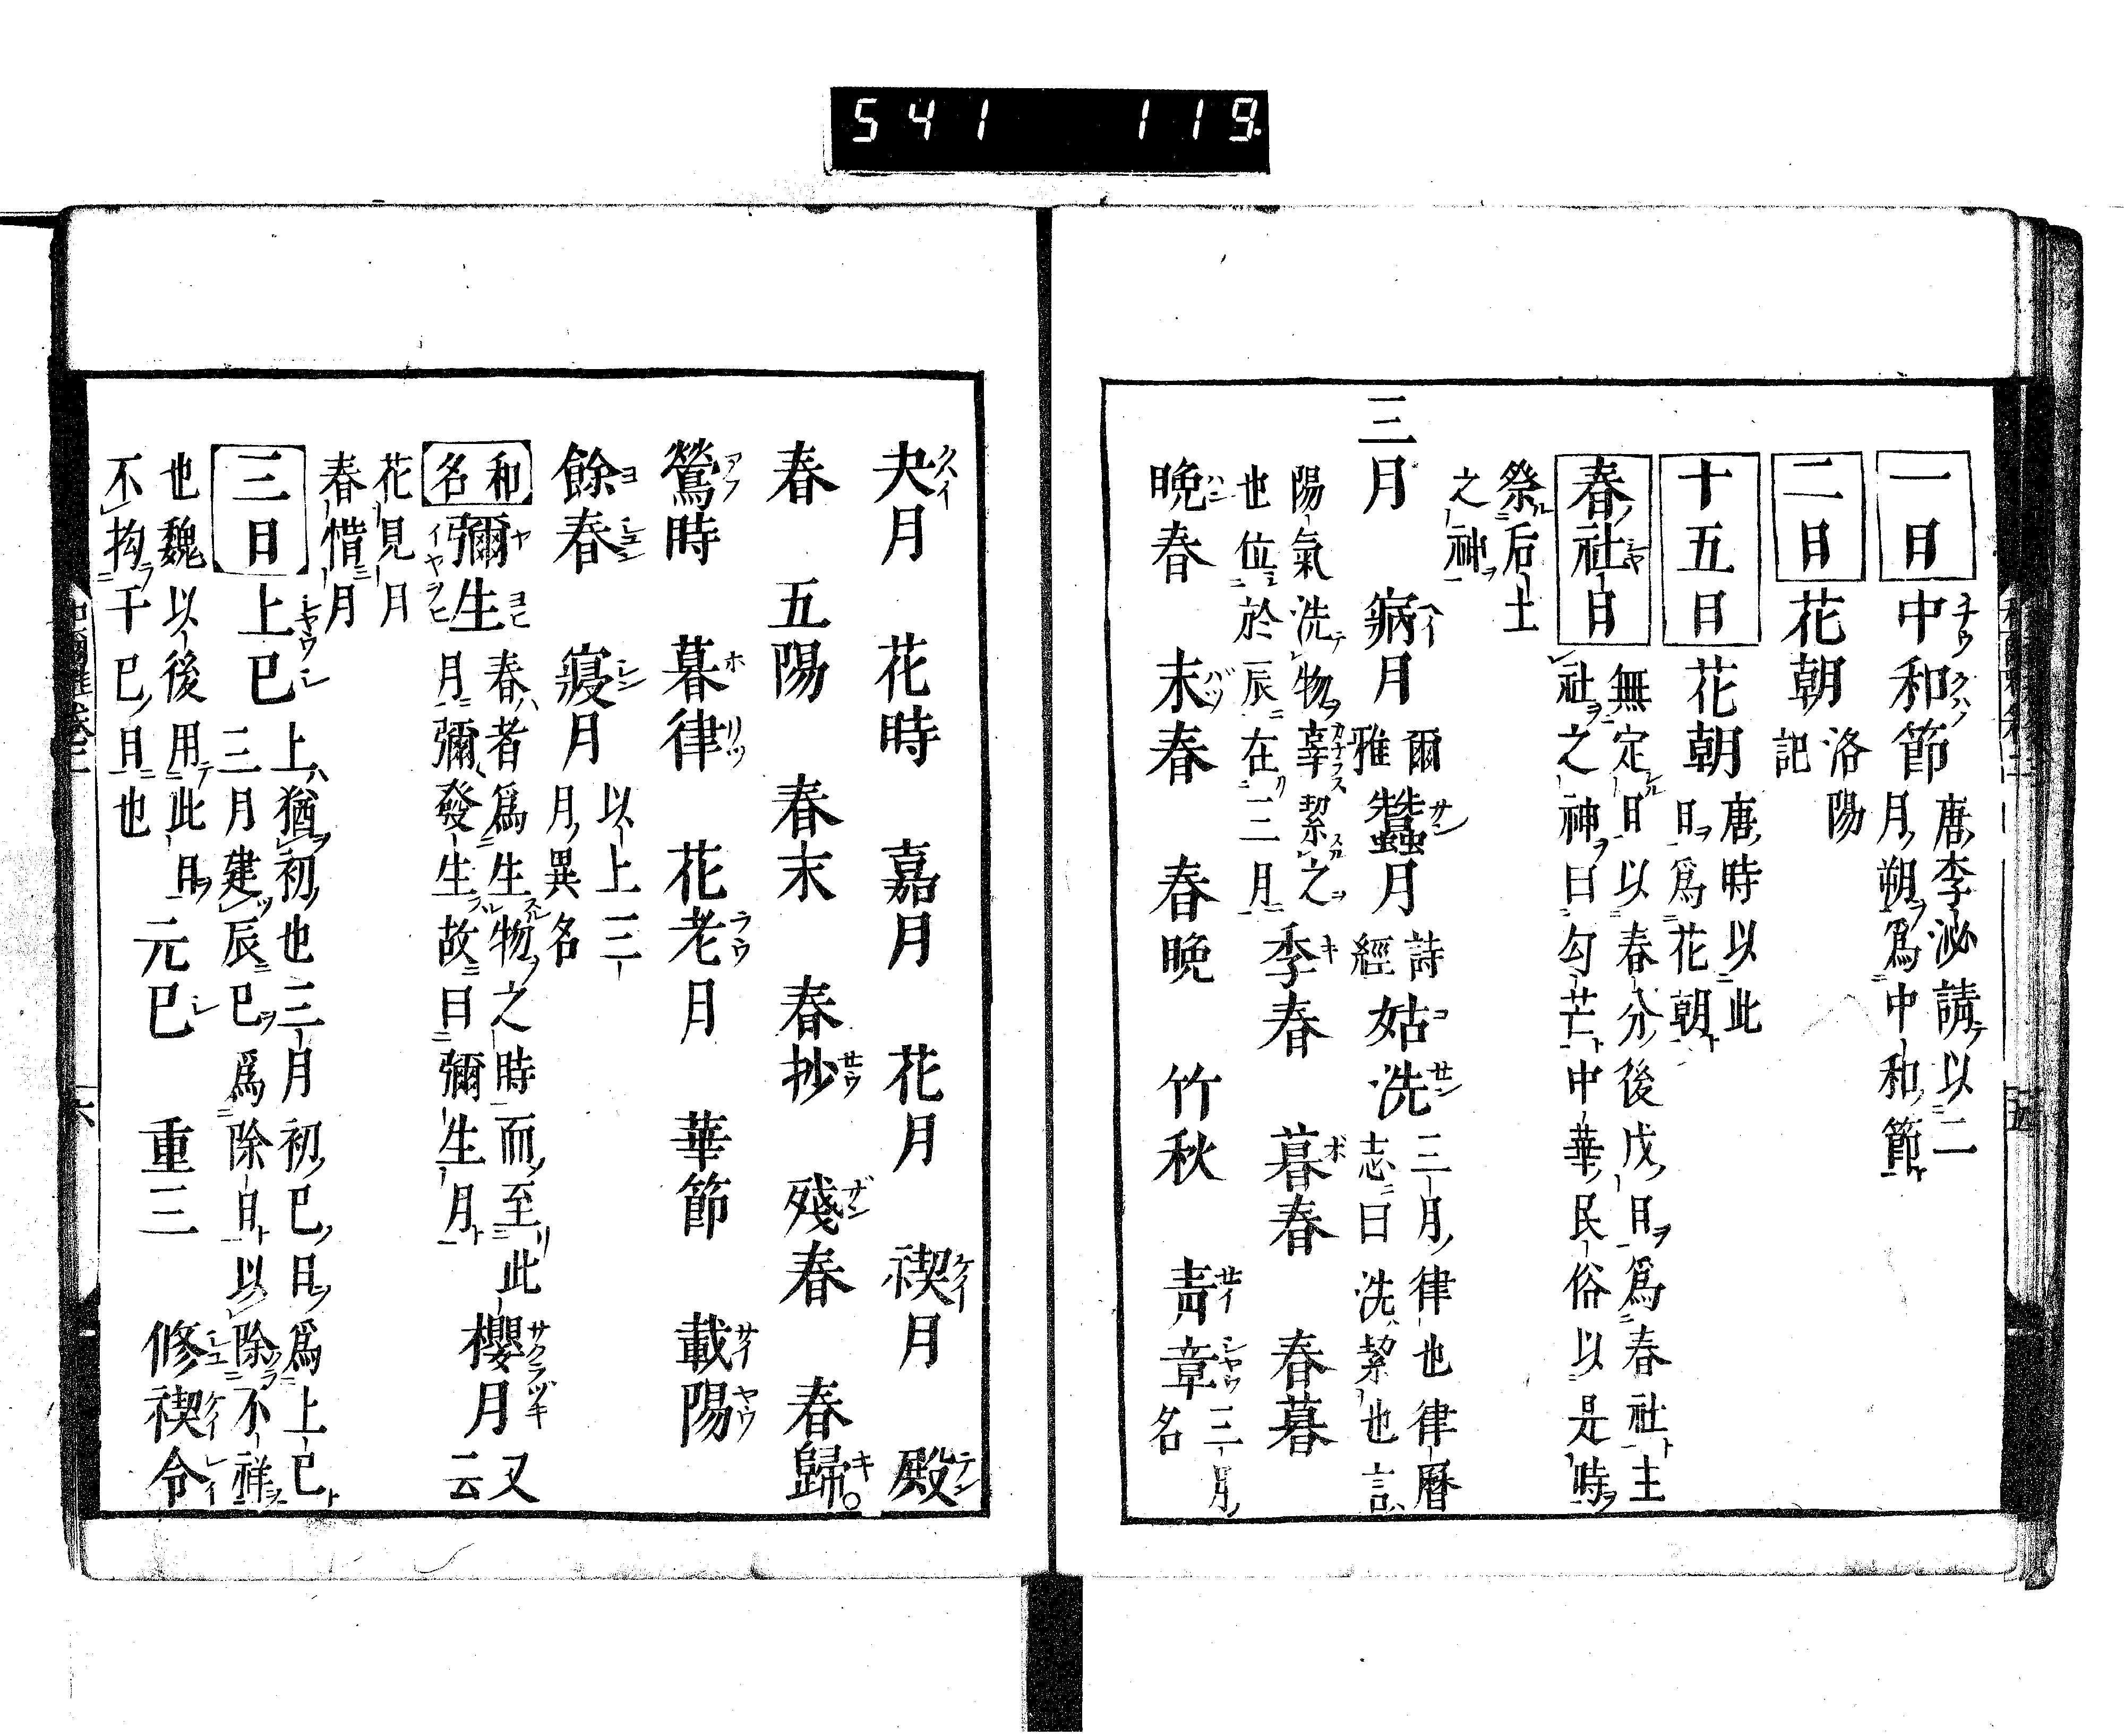 541 119.
一日中和節唐李泌請以二
月朔爲中和節
二日花朝洛陽
記
十五日花朝唐時以此
日爲花朝
春社日無定日以春分後戊日爲春社主
社之神曰勾芒中華民俗以是時
祭后土
之神
三月 病月爾雅蠶月詩經姑洗三月律也律曆
志曰洗絜也言
陽氣洗物辜絜之
也位於辰在三月季春 暮春 春暮
晩春 末春 春晩 竹秋 青章三月
名
夬月 花時 嘉月 花月 禊月 殿
春 五陽 春末 春抄 殘春 春歸
鶯時 暮律 花老月 華節 載陽
餘春 寎月以上三
月異名
和名彌生春者爲生物之時而至此
月彌發生故曰彌生月櫻月又
云
花見月
春惜月
三日上巳上猶初也三月初巳日爲上巳
三月建辰巳爲除日以除不祥
也魏以後用此日
不拘干巳日也元巳 重三 修禊令
五
六